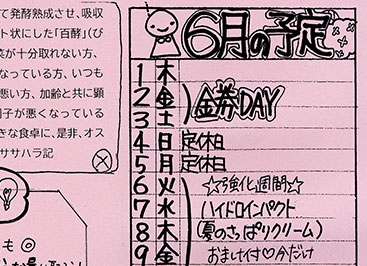 て発酵熟成させ、吸収
ト状にした「百酵」(び
菜が十分取れない方、
なっている方、いつも
悪い方、加齢と共に顕
調子が悪くなっている
きな食卓に、是非、オス
ササハラ記
も◎
6月の予定
1 木
2 金 金券DAY
3 土
4 日 定休日
5 月 定休日
6 火 ☆強化週間☆
7 水 ハイドロインパクト
8 木 (夏のさっぱりクリーム)
9 金 おまけ付♡今だけ